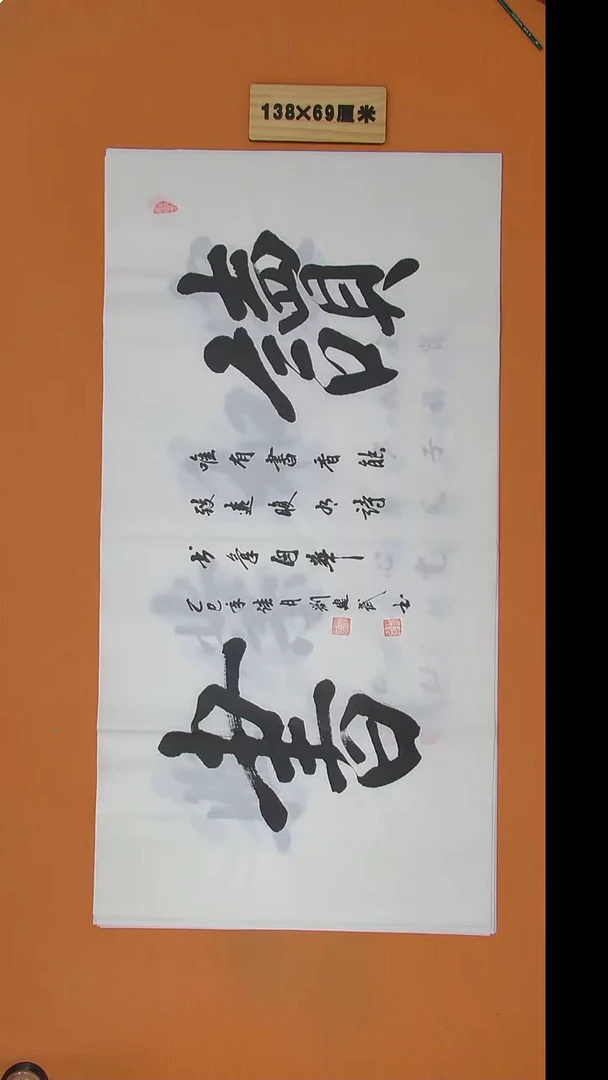 138×69厘米
讀
唯有書香能
致遠腹有詩
书氣自華
乙巳年佳月劉建武书
書